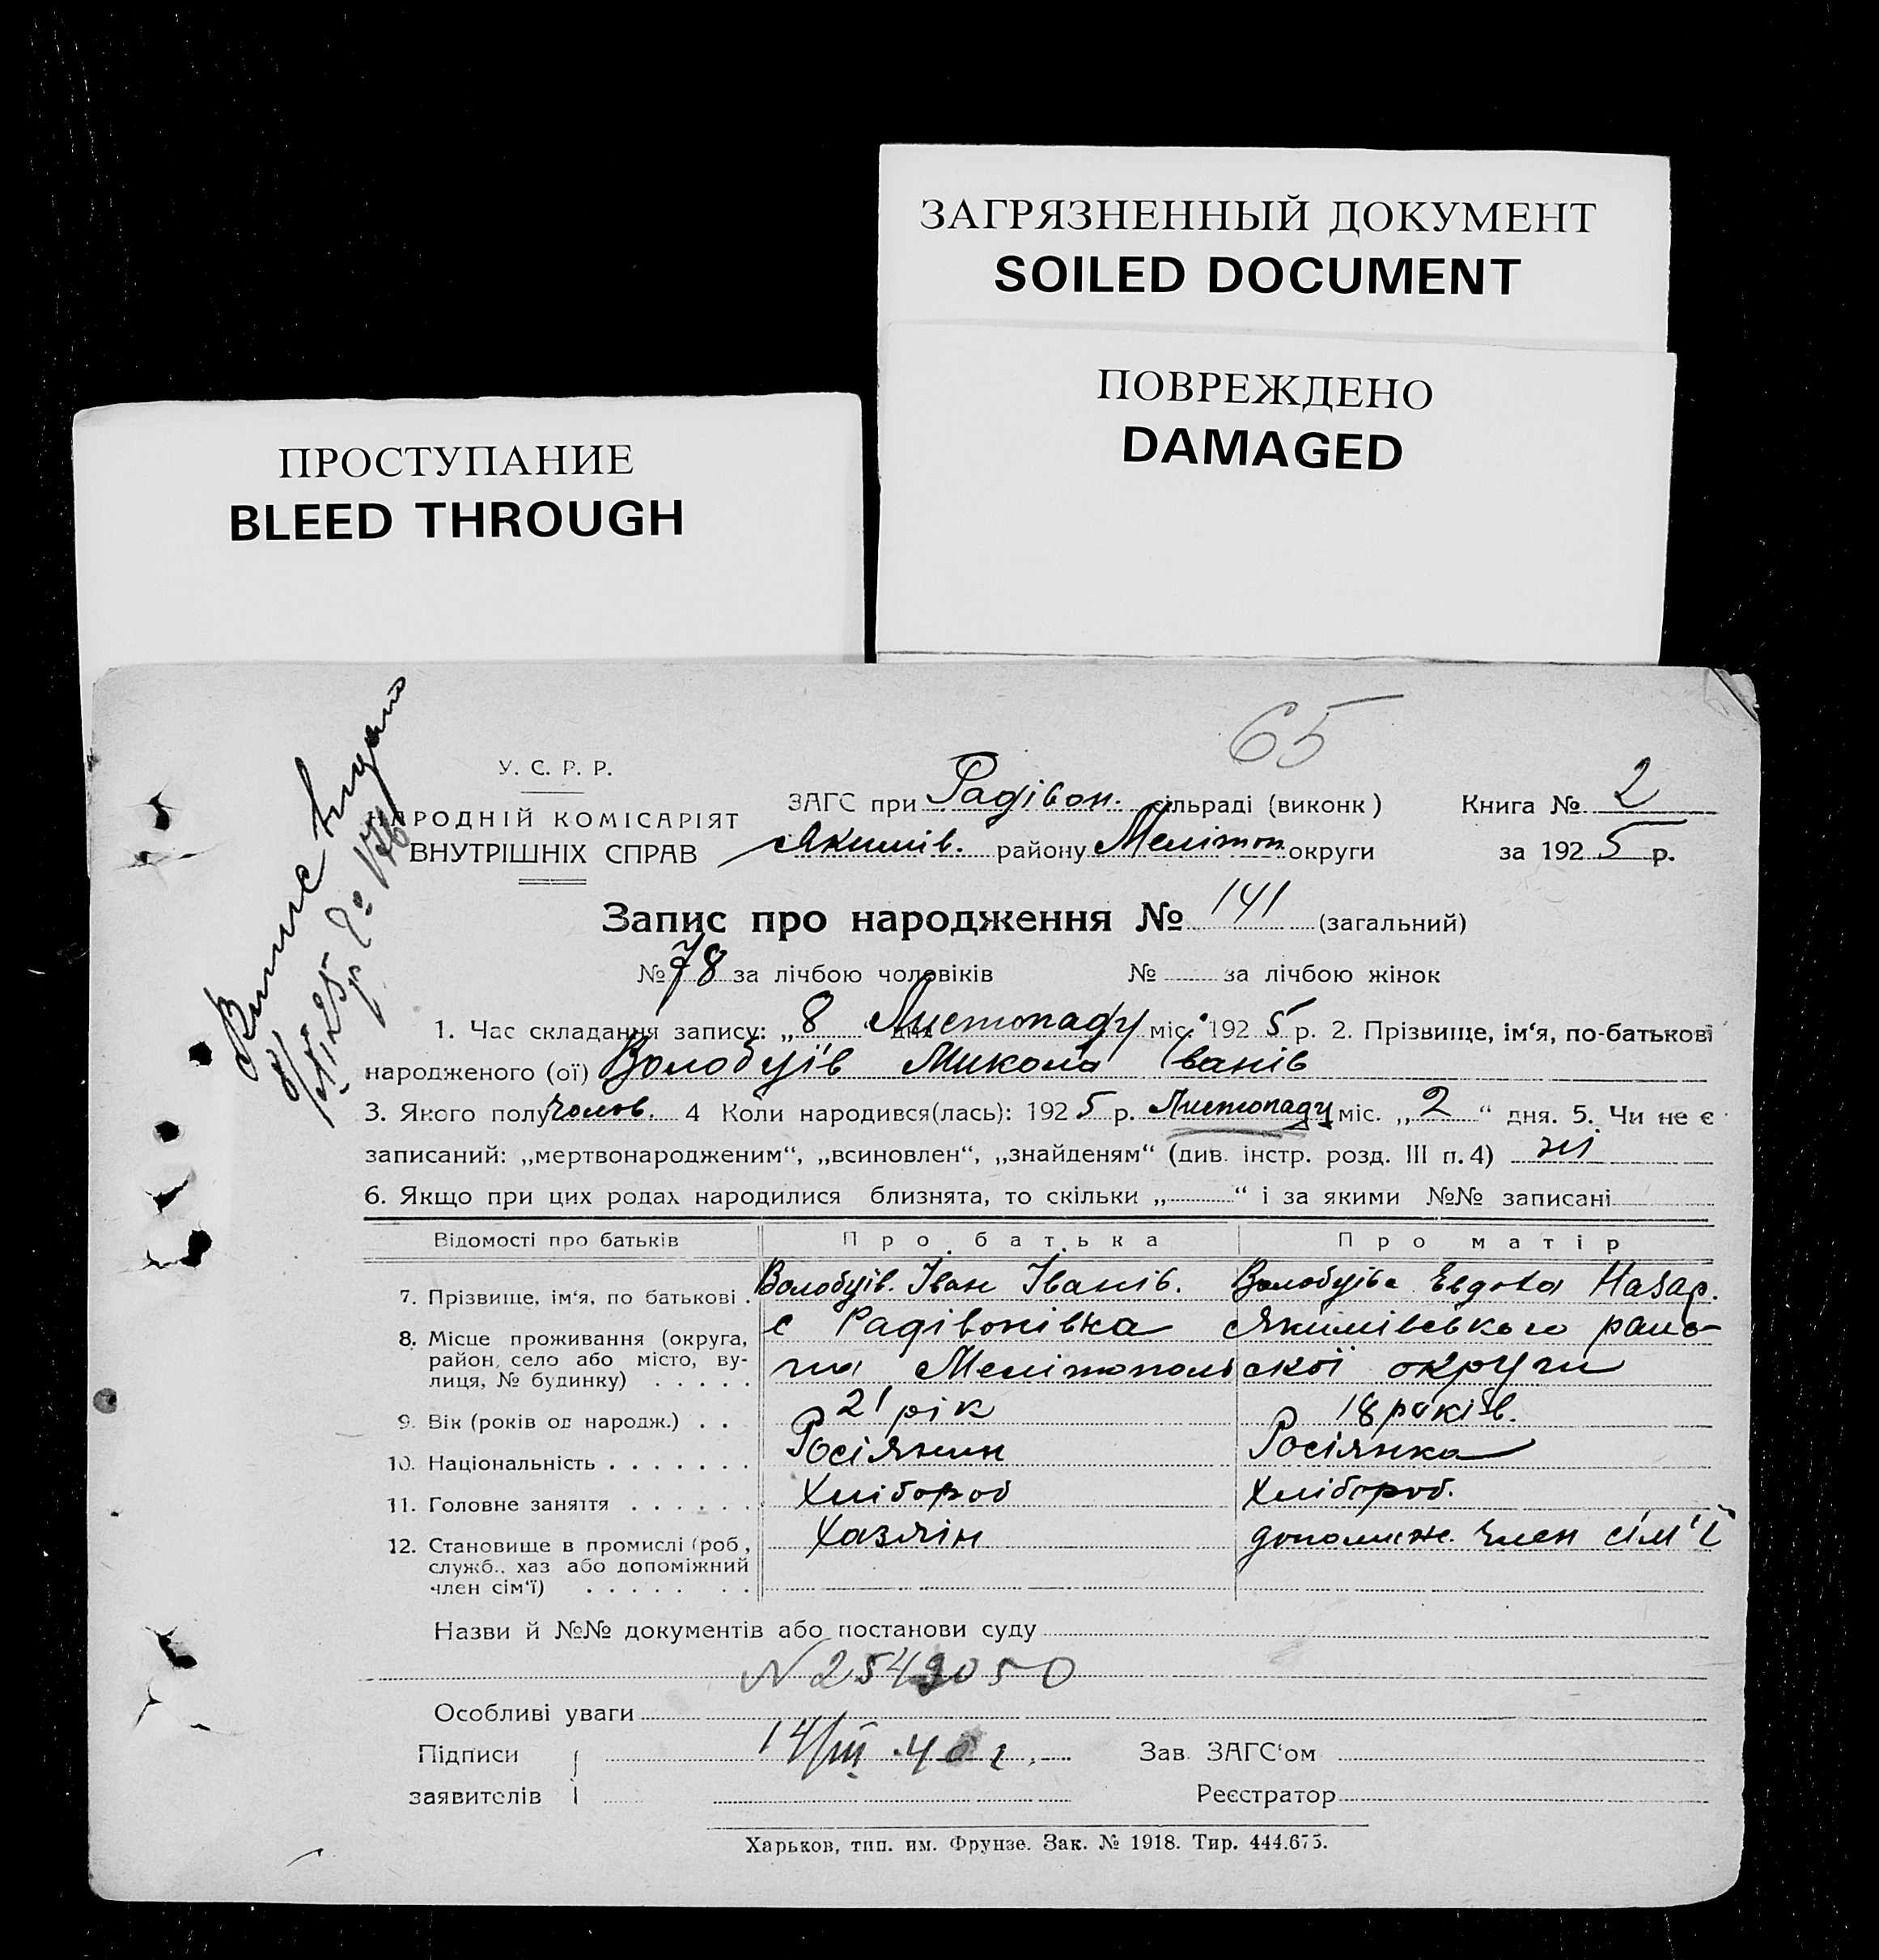 ЗАГРЯЗНЕННЫЙ ДОКУМЕНТ
SOILED DOCUMENT
ПОВРЕЖДЕНО
DAMAGED
ПРОСТУПАНИЕ
BLEED THROUGH
65
У. С. Р. Р.
НАРОДНІЙ КОМІСАРІЯТ
ВНУТРІШНІХ СПРАВ
ЗАГС при Радівон. сільраді (виконк)
Якимів. району Мелітоп округи
Книга № 2
за 1925 р.
Запис про народження № 141 (загальний)
№ 78 за лічбою чоловіків № за лічбою жінок
1. Час складання запису: „8“ дня Листопаду міс. 1925 р. 2. Прізвище, ім‘я, по-батькові
народженого (ої) Волобуїв Микола Іванів
3. Якого полу чолов. 4 Коли народився(лась): 1925 р. Листопаду міс. „2“ дня. 5. Чи не є
записаний: „мертвонародженим“, „всиновлен“, „знайденям“ (див. інстр. розд. III п. 4) ні
6. Якщо при цих родах народилися близнята, то скільки „ “ і за якими №№ записані
Відомості про батьків Про батька Про матір
7. Прізвище, ім‘я, по батькові . Волобуїв. Іван Іванів. Волобуїва Евдока Назар.
8. Місце проживання (округа, район, село або місто, вулиця, № будинку) . . . . . с Радівонівка Якимівського райо-
на Мелітопольскої округи
9. Вік (років од народж.) . . 21 рік 18 років.
10. Національність . . . . . . . Росіянин Росіянка
11. Головне заняття . . . . . . Хлібороб Хлібороб.
12. Становище в промислі (роб., служб., хаз або допоміжний член сім‘ї) . . . . . . . Хазяїн допоміж. член сім'ї
Назви й №№ документів або постанови суду
N 2549050
Особливі уваги
Підписи 14/III.40 г. Зав. ЗАГС‘ом
заявителів Реєстратор
Харьков, тип. им. Фрунзе. Зак. № 1918. Тир. 444.675.